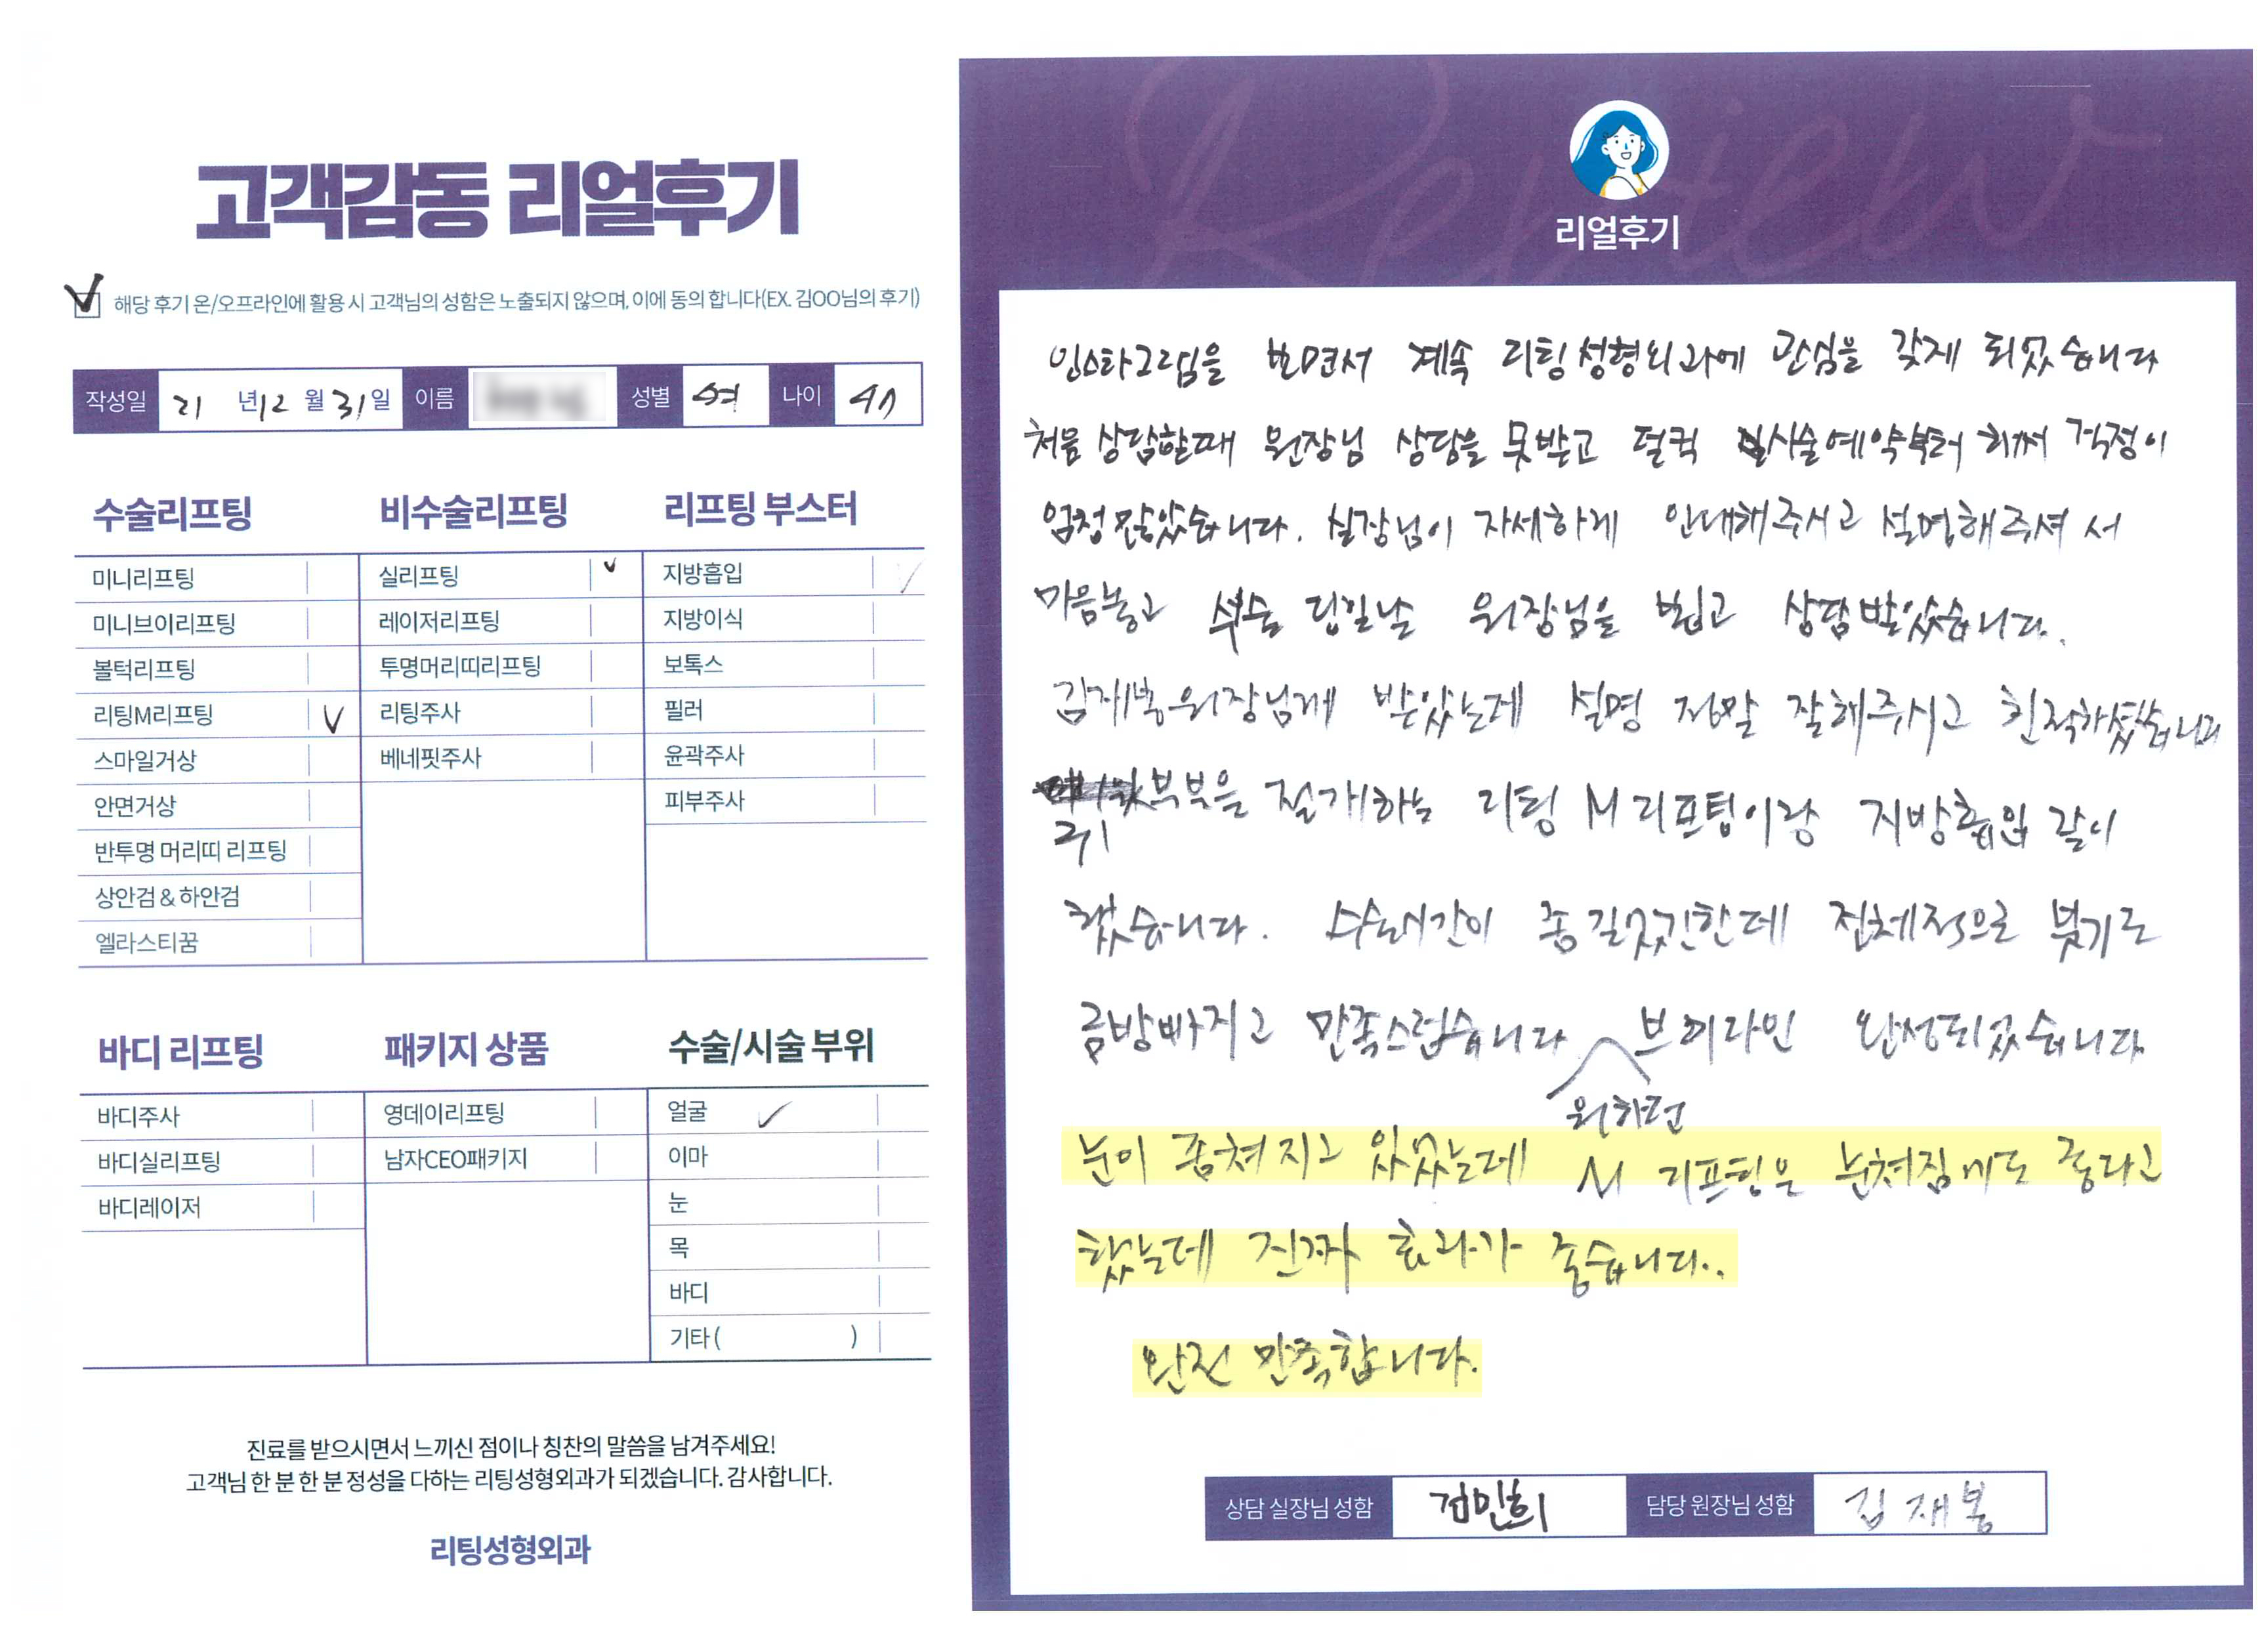 고객감동 리얼후기
해당 후기 온/오프라인에 활용 시 고객님의 성함은 노출되지 않으며, 이에 동의 합니다(EX. 김OO님의 후기)
작성일 21 년 12 월 31 일 이름 성별 여 나이
수술리프팅
미니리프팅
미니브이리프팅
볼턱리프팅
리팅M리프팅 V
스마일거상
안면거상
반투명 머리띠 리프팅
상안검 & 하안검
엘라스티꿈
비수술리프팅
실리프팅
레이저리프팅
투명머리띠리프팅
리팅주사
베네핏주사
리프팅 부스터
지방흡입
지방이식
보톡스
필러
윤곽주사
피부주사
바디 리프팅
바디주사
바디실리프팅
바디레이저
패키지 상품
영데이리프팅
남자CEO패키지
수술/시술 부위
얼굴
이마
눈
목
바디
기타 ( )
진료를 받으시면서 느끼신 점이나 칭찬의 말씀을 남겨주세요!
고객님 한 분 한 분 정성을 다하는 리팅성형외과가 되겠습니다. 감사합니다.
리팅성형외과
Review
리얼후기
인스타그램을 보면서 계속 리팅성형외과에 관심을 갖게 되었습니다
처음 상담할때 원장님 상담을 못받고 덜컥 시술예약부터 해서 걱정이
엄청 많았습니다. 실장님이 자세하게 안내해주시고 설명해주셔서
마음놓고 수술 당일날 원장님을 뵙고 상담받았습니다.
김재봉원장님께 받았는데 설명 정말 잘해주시고 친절하셨습니다
귀 부분을 절개하는 리팅 M리프팅이랑 지방흡입 같이
했습니다. 수술시간이 좀 길었긴한데 전체적으로 붓기도
금방빠지고 만족스럽습니다 원하던 브이라인 완성되었습니다
눈이 좀 쳐지고 있었는데 M 리프팅은 눈쳐짐에도 좋다고
했는데 진짜 효과가 좋습니다..
완전 만족합니다.
상담 실장님 성함 김민희 담당 원장님 성함 김재봉